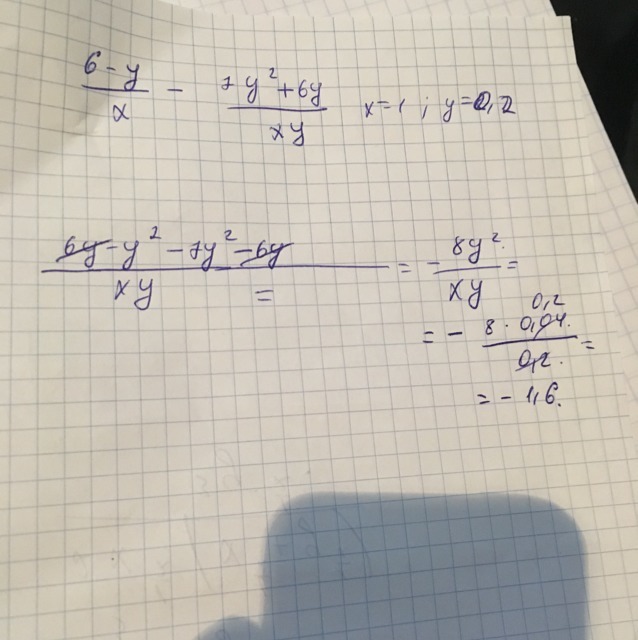 6-y/x - 7y²+6y/xy x=1; y=0,2
6y-y²-7y²-6y/xy = = -8y²/xy =
= - 8·0,04/0,2 = 0,2
= -1,6.